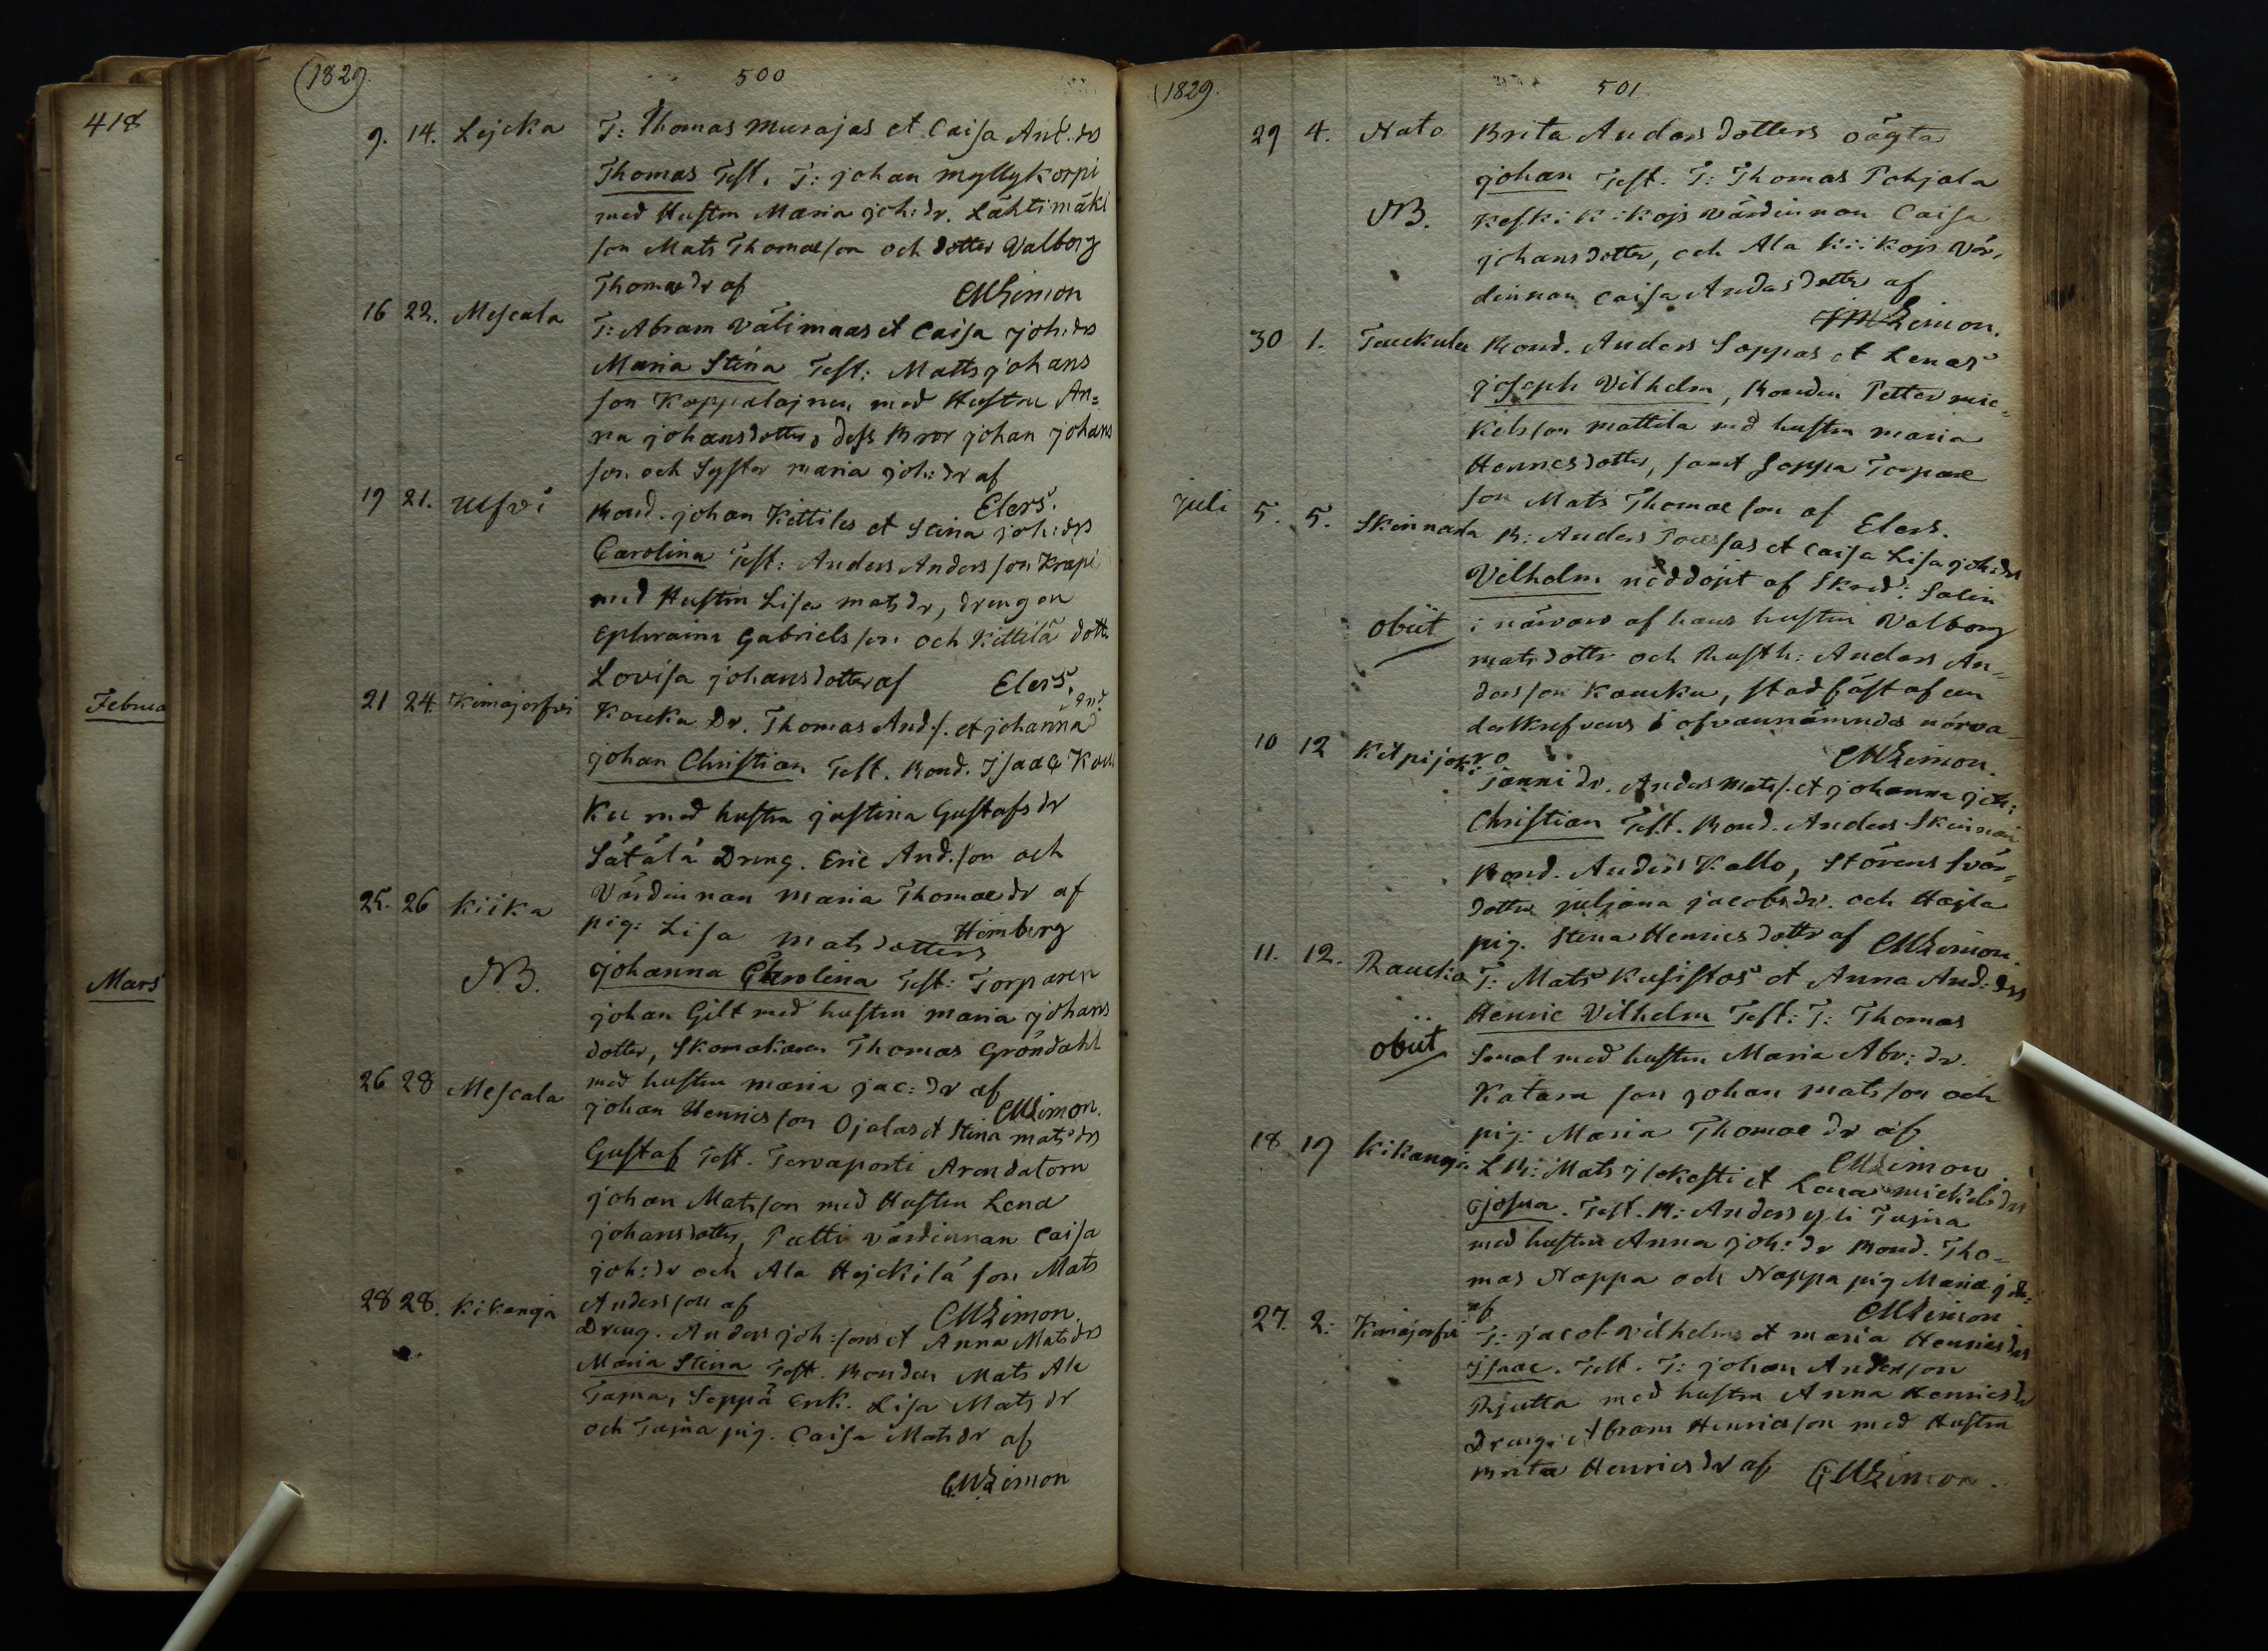 418
Februa
Mars
1829.
500
9. 14. Lejcka T: Thomas Murajas et Caisa And. ds
Thomas Test. T: johan myllykorpi
med Hustru Maria joh: dr. Lähtimäki
son Mats Thomaeson och dotter Valborg
Thomae dr af CMLimon
16 22. Mescala T: Abram Välimaas et Caisa joh: drs
Maria Stina Test: Matts johans
son Koppelajnen med Hustru An=
na johansdotter, dess Bror johan johans
son och Syster maria joh: dr af
Elers.
19 21. Ulfvi Bond. johan Kittiles et Stina joh: drs
Carolina Test: Anders Andersson Krapi
med Hustru Lisa mats dr, drengen
Ephraim Gabrielsson och Kittilä dotter
Lovisa johansdotter af Elers.
21 24. Kimajerfvi Kauka Dr. Thomas Ands. et johanna
johan Christian Test. Bond. Isaac Kau
ku med hustru justina Gustafs dr
Sätälä Dreng. Eric And.son och
Värdinnan Maria Thomae dr af
Himberg
25. 26 Kiika pig: Lisa Matsdotters
NB. johanna Carolina Test: Torparen
johan Gilt med hustru maria johans
dotter, Skomakaren Thomas Gröndahl
med hustru maria jac: dr af
CMLimon.
26 28 Mescala johan Henricsson Ojalas et Stina mats drs
Gustaf Test. Tervaporti Arendatorn
johan Matsson med Hustru Lena
johansdotter, Peltti värdinnan Caisa
joh: dr och Ala Hejckilä son Mats
Andersson af CMLimon.
28 28. Kikanoja Dreng. Anders joh: sons et Anna Mats drs
Maria Stina Test. Bonden Mats Ala
Tajna, Seppä Enk. Lisa Mats dr
och Tajna pig. Caisa Mats dr af
CMLimon
1829.
501
29 4. Nato Brita Andersdotters oägta
johan Test. T: Thomas Pohjala
NB. Keski Kikojs värdinnan Caisa
johansdotter, och Ala Kiikojs Vär,
dinnan Caisa Andersdotter af
CMLimon.
30 1. Taukula Bond. Anders Soppas et Lenas
joseph Vilhelm, Bonden Petter mic=
kelsson mattila med hustru maria
Henricsdotter, samt Soppa Torpare
son Mats Thomaeson af Elers.
Juli 5. 5. Skinnarla B: Anders Poussas et Caisa Lisa joh: drs
Vilhelm nöddöpt af Skred: Salin
obiit i närvaro af hans hustru Valborg
matsdotter och Rusth: Anders An=
dersson Kauku, stadfäst af un
dertknefvens i ofvannämndes närva=
ro CMLimon.
10 12 Kilpijoki janni dr. Anders Mats. et johanna joh:
Christian Test. Bond. Anders Skinnari
Bond. Anders Kallo, Störens Svär=
dotter juljana jacobs dr. och Hajla
pig. Stina Henricsdotter af CMLimon.
11. 12. Raucko T: Mats Kusistos et Anna And: drs
Henric Vilhelm Test: T: Thomas
obiit Senal med hustru Maria Abr: dr.
Katara son johan matsson och
pig: Maria Thomae dr af
CMLimon.
18 19 Kikanoja L B: Mats Isokesti et Lena mickels drs
josua. Test. B: Anders yli Tajna
med hustru Anna joh: dr Bond. Tho=
mas Noppa och Noppa pig Maria joh:
af CMLimon.
27. 2. Kimajerfvi T: jacob Vilhelms et maria Henrics drs
Isaac. Test. T: johan Andersson
Rjutta med hustru Anna Henrics dr
Dreng. Abram Henricsson med Hustru
Brita Henrics dr af CMLimon.